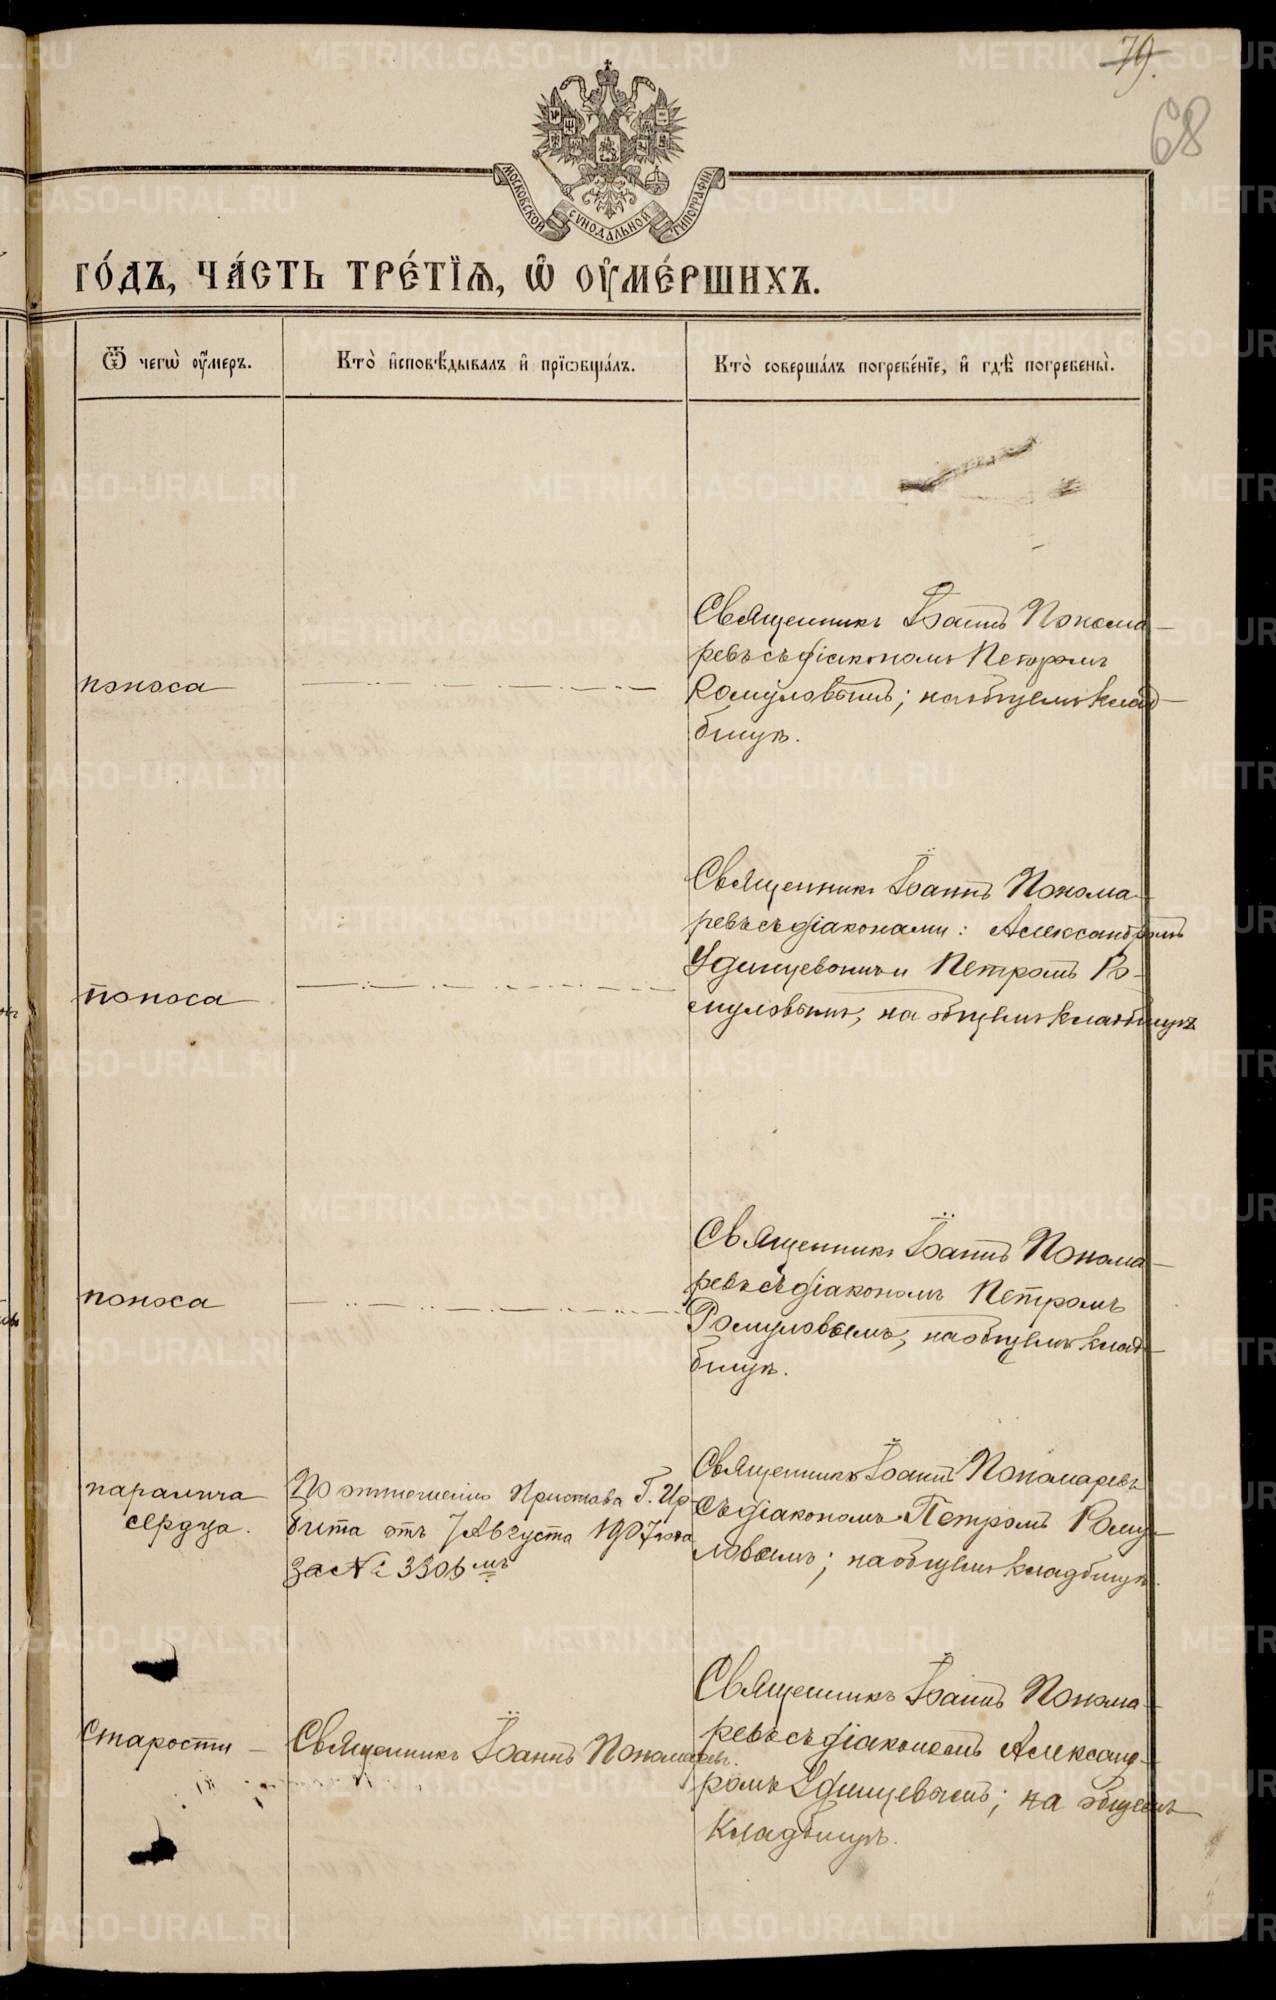 79.
68
МОСКОВСКОЙ СУНОДАЛЬНОЙ ТИПОГРАФИИ
го́дъ, ча́сть тре́тїѧ, ѡ҆ ᲂу҆ме́ршихъ.
Ѿ чегѡ̀ ᲂу҆́меръ.
Кто̀ и҆сповѣ́дывалъ и҆ прїѡбща́лъ.
Кто̀ соверша́лъ погребе́нїе, и҆ гдѣ̀ погребены̀.
поноса
Священникъ Іоаннъ Понома-
ревъ съ діакономъ Петромъ
Ромуловымъ; на общемъ клад-
бищѣ.
поноса
Священникъ Іоаннъ Понома-
ревъ съ діаконами: Александромъ
Удинцевымъ и Петромъ Ро-
муловымъ, на общемъ кладбищѣ
поноса
Священникъ Іоаннъ Понома-
ревъ съ діакономъ Петромъ
Ромуловымъ, на общемъ клад-
бищѣ.
паралича
сердца.
По отношенію Пристава Г. Ир-
бита отъ 7 Августа 1907 года
за № 3306 мъ
Священникъ Іоаннъ Пономаревъ
съ діакономъ Петромъ Рому-
ловымъ; на общемъ кладбищѣ.
старости
Священникъ Іоаннъ Пономаревъ.
Священникъ Іоаннъ Понома-
ревъ съ діакономъ Александ-
ромъ Удинцевымъ; на общемъ
кладбищѣ.
METRIKI.GASO-URAL.RU